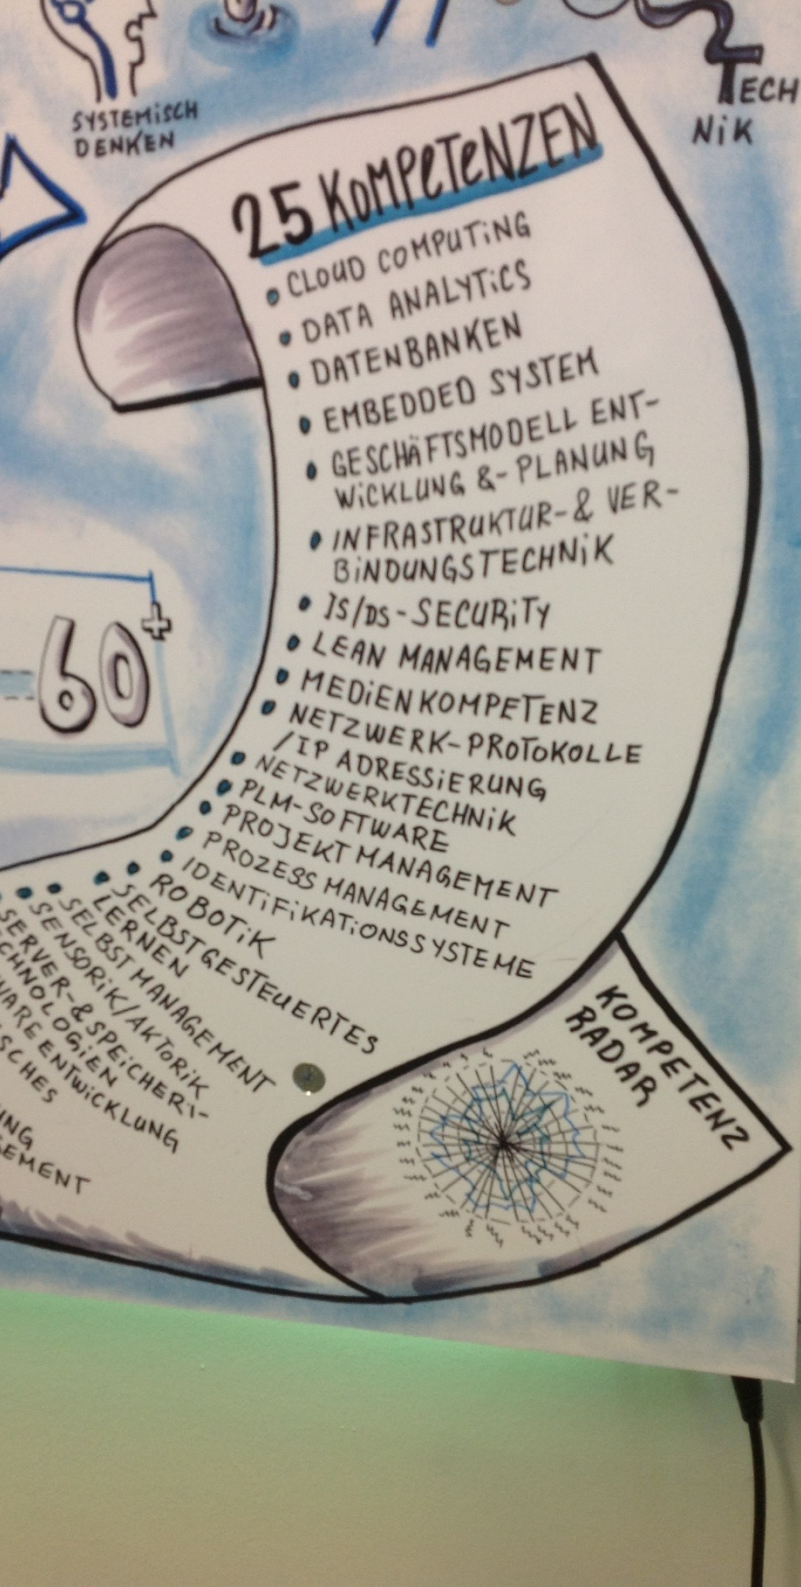 SYSTEMiSCH
DENKEN
TECH
NiK
25 KOMPeTeNZEN
• CLOUD COMPUTiNG
• DATA ANALYTiCS
• DATENBANKEN
• EMBEDDED SYSTEM
• GESCHÄFTSMODELL ENT-
WiCKLUNG &- PLANUNG
• INFRASTRUKTUR-& VER-
BiNDUNGSTECHNiK
• IS/DS-SECURiTY
• LEAN MANAGEMENT
• MEDiENKOMPETENZ
• NETZWERK-PROTOKOLLE
/IP ADRESSiERUNG
• NETZWERKTECHNiK
• PLM-SOFTWARE
• PROJEKT MANAGEMENT
• PROZESS MANAGEMENT
• IDENTiFiKATiONSSYSTEME
• ROBOTiK
• SELBSTGESTEUERTES
LERNEN
• SELBST MANAGEMENT
• SENSORiK/AKTORiK
• SERVER-& SPEiCHERi-
CHNOLOGiEN
WARE ENTWiCKLUNG
SCHES
UNG
EMENT
60+
KOMPETENZ
RADAR